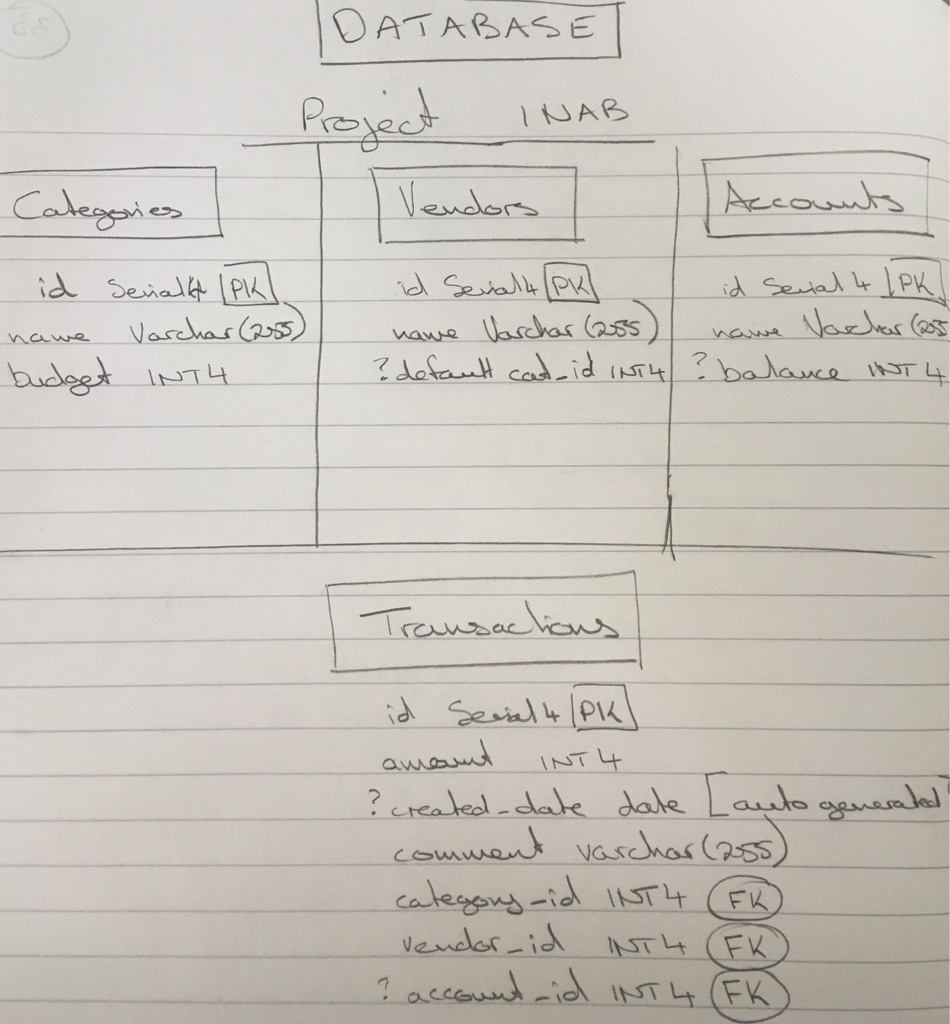 DATABASE
Project INAB
Categories
id Serial4 PK
name Varchar(255)
budget INT4
Vendors
id Serial4 PK
name Varchar(255)
?default cat_id INT4
Accounts
id Serial4 PK
name Varchar(255
?balance INT4
Transactions
id Serial4 PK
amount INT4
?created_date date [auto generated]
comment varchar(255)
category_id INT4 FK
vendor_id INT4 FK
? account_id INT4 FK